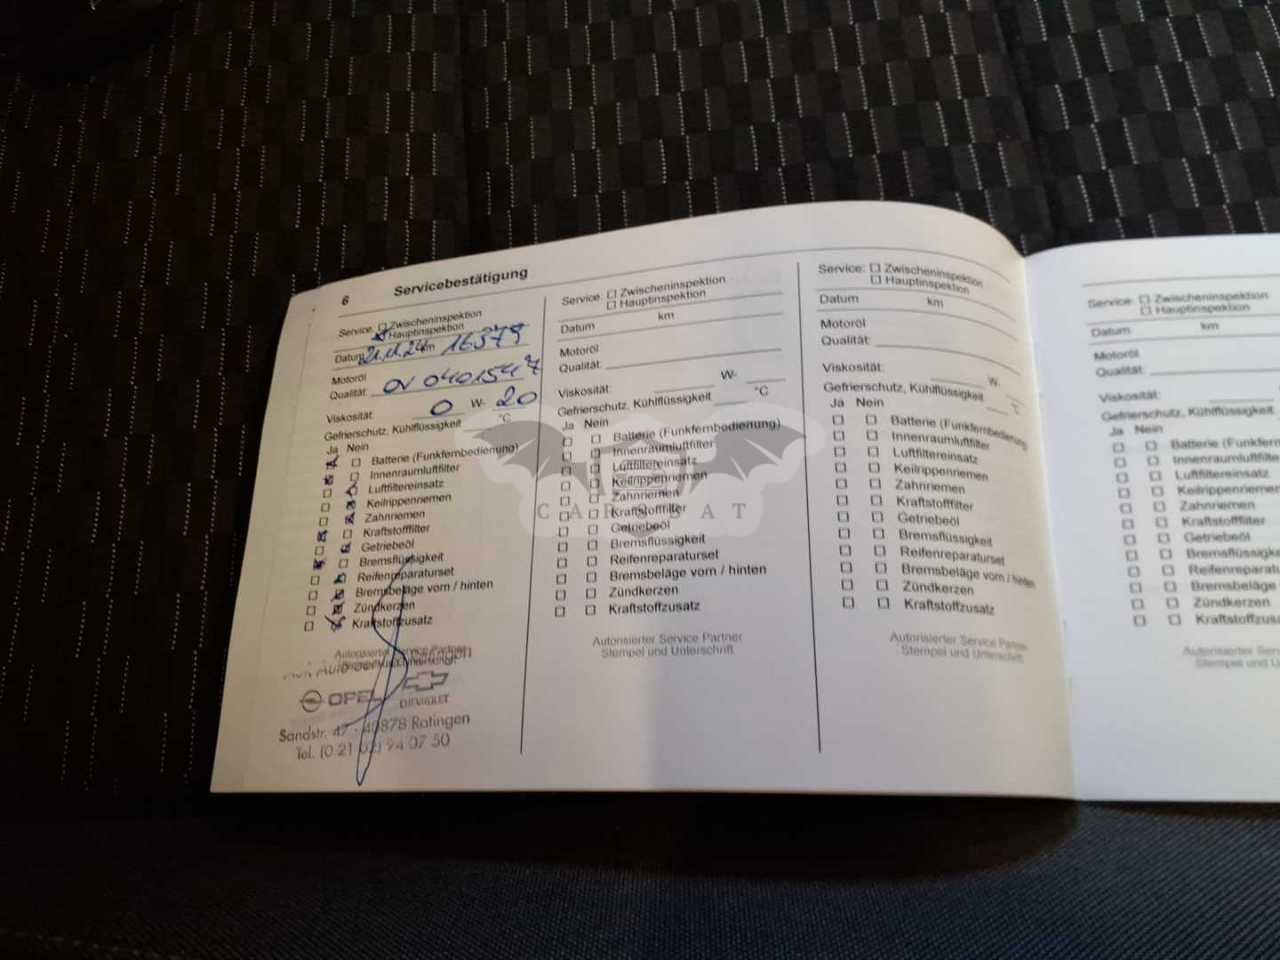 6 Servicebestätigung
Service: Zwischeninspektion
Hauptinspektion
Datum 21.11.24 km 16579
Motoröl
Qualität: OV 0401547
Viskosität: 0 W- 20
Gefrierschutz, Kühlflüssigkeit °C
Ja Nein
Batterie (Funkfernbedienung)
Innenraumluftfilter
Luftfiltereinsatz
Keilrippenriemen
Zahnriemen
Kraftstofffilter
Getriebeöl
Bremsflüssigkeit
Reifenreparaturset
Bremsbeläge vorn / hinten
Zündkerzen
Kraftstoffzusatz
Autorisierter Service Partner
OPEL CHEVROLET
Sandstr. 47 · 40878 Ratingen
Tel. (0 21 02) 94 07 50
Service: Zwischeninspektion
Hauptinspektion
Datum km
Motoröl
Qualität:
Viskosität: W-
Gefrierschutz, Kühlflüssigkeit °C
Ja Nein
Batterie (Funkfernbedienung)
Innenraumluftfilter
Luftfiltereinsatz
Keilrippenriemen
Zahnriemen
Kraftstofffilter
Getriebeöl
Bremsflüssigkeit
Reifenreparaturset
Bremsbeläge vorn / hinten
Zündkerzen
Kraftstoffzusatz
Autorisierter Service Partner
Stempel und Unterschrift
Service: Zwischeninspektion
Hauptinspektion
Datum km
Motoröl
Qualität:
Viskosität: W-
Gefrierschutz, Kühlflüssigkeit °C
Ja Nein
Batterie (Funkfernbedienung)
Innenraumluftfilter
Luftfiltereinsatz
Keilrippenriemen
Zahnriemen
Kraftstofffilter
Getriebeöl
Bremsflüssigkeit
Reifenreparaturset
Bremsbeläge vorn / hinten
Zündkerzen
Kraftstoffzusatz
Autorisierter Service Partner
Stempel und Unterschrift
Service: Zwischeninspektion
Hauptinspektion
Datum km
Motoröl
Qualität:
Viskosität:
Gefrierschutz, Kühlflüssigkeit
Ja Nein
Batterie (Funkfern
Innenraumluftfilter
Luftfiltereinsatz
Keilrippenriemen
Zahnriemen
Kraftstofffilter
Getriebeöl
Bremsflüssigk
Reifenreparatu
Bremsbeläge
Zündkerzen
Kraftstoffzus
Autorisierter Se
Stempel und